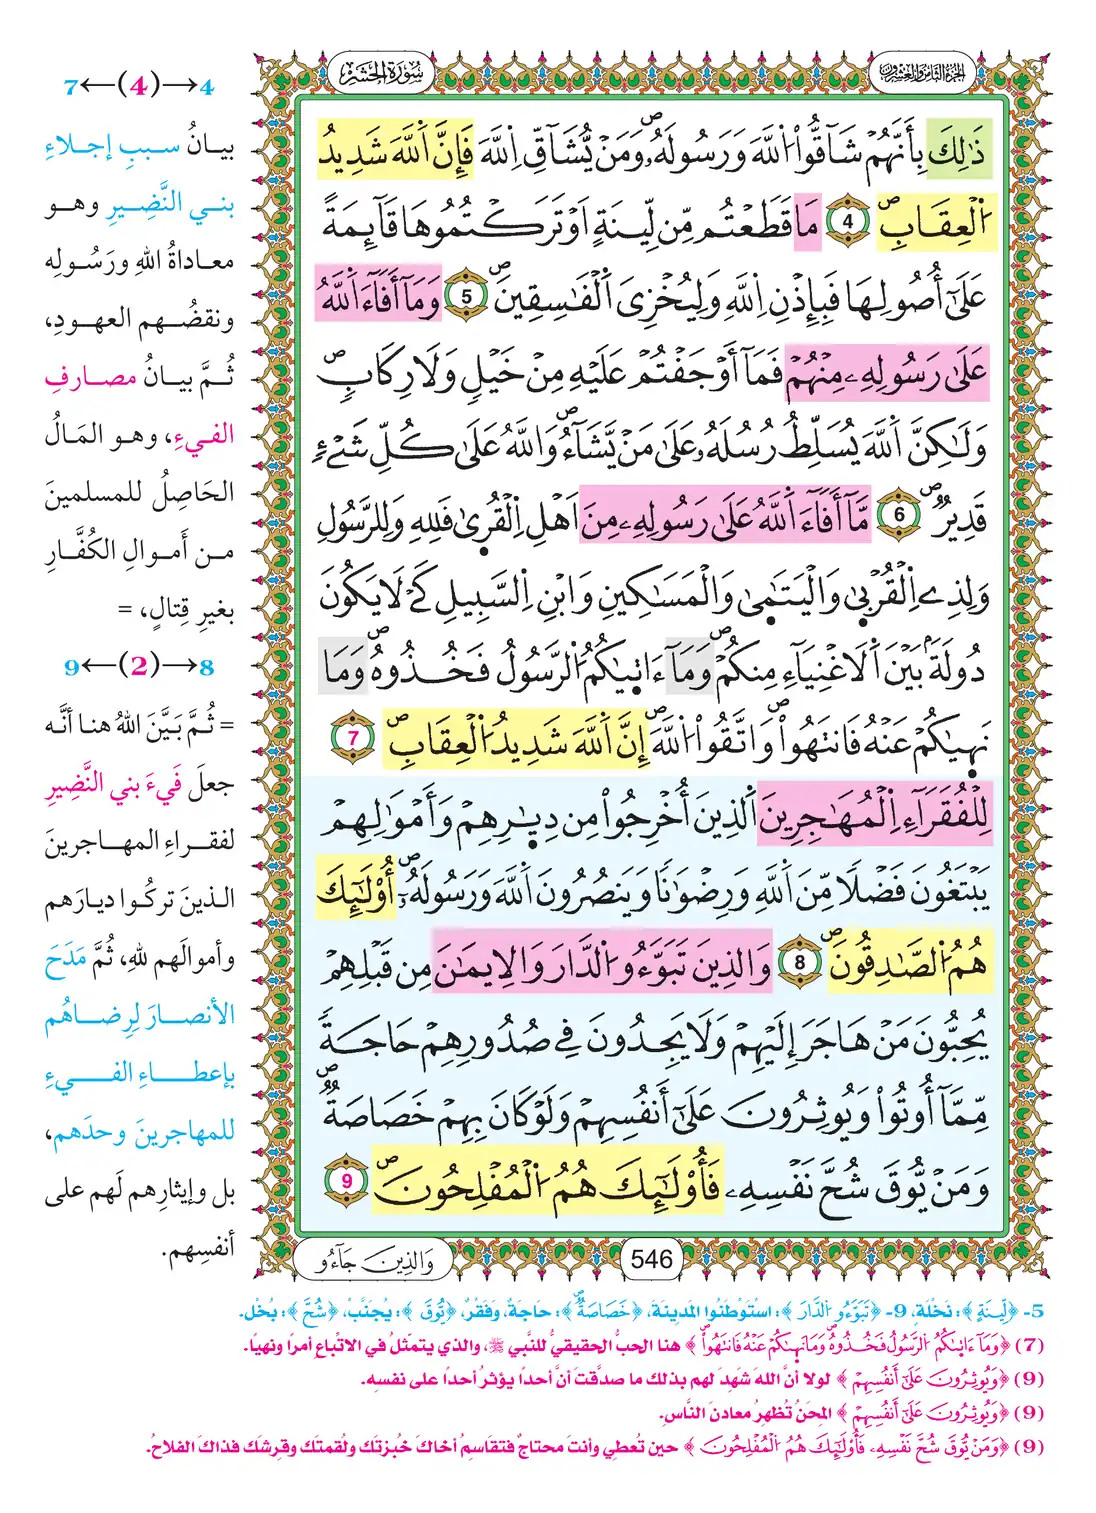 الجزء الثامن والعشرون
سورة الحشر
ذَٰلِكَ بِأَنَّهُمْ شَآقُّواْ اللَّهَ وَرَسُولَهُۥ وَمَنْ يُّشَآقِّ اِللَّهَ فَإِنَّ اَللَّهَ شَدِيدُ
اُلْعِقَابِ 4 مَا قَطَعْتُم مِّن لِّينَةٍ اَوْ تَرَكْتُمُوهَا قَآئِمَةً
عَلَىٰٓ أُصُولِهَا فَبِإِذْنِ اِللَّهِ وَلِيُخْزِىَ اَلْفَٰسِقِينَ 5 وَمَآ أَفَآءَ اَللَّهُ
عَلَىٰ رَسُولِهِۦ مِنْهُمْ فَمَآ أَوْجَفْتُمْ عَلَيْهِ مِنْ خَيْلٍ وَلَا رِكَابٍ
وَلَٰكِنَّ اَللَّهَ يُسَلِّطُ رُسُلَهُۥ عَلَىٰ مَنْ يَّشَآءُ وَاللَّهُ عَلَىٰ كُلِّ شَےْءٍ
قَدِيرٌ 6 مَّآ أَفَآءَ اَللَّهُ عَلَىٰ رَسُولِهِۦ مِنَ اَهْلِ اِلْقُرٜىٰ فَلِلهِ وَلِلرَّسُولِ
وَلِذِے اِلْقُرْبٜىٰ وَالْيَتَٰمٜىٰ وَالْمَسَٰكِينِ وَابْنِ اِلسَّبِيلِ كَےْ لَا يَكُونَ
دُولَةَۢ بَيْنَ اَلَاغْنِيَآءِ مِنكُمْ وَمَآ ءَاتٜىٰكُمُ اُلرَّسُولُ فَخُذُوهُ وَمَا
نَهٜىٰكُمْ عَنْهُ فَانتَهُواْ وَاتَّقُواْ اُللَّهَ إِنَّ اَللَّهَ شَدِيدُ اُلْعِقَابِ 7
لِلْفُقَرَآءِ اِلْمُهَٰجِرِينَ اَلذِينَ أُخْرِجُواْ مِن دِيٰٜرِهِمْ وَأَمْوَٰلِهِمْ
يَبْتَغُونَ فَضْلًا مِّنَ اَللَّهِ وَرِضْوَٰنًا وَيَنصُرُونَ اَللَّهَ وَرَسُولَهُۥٓ أُوْلَٰٓئِكَ
هُمُ اُلصَّٰدِقُونَ 8 وَالذِينَ تَبَوَّءُو اُلدَّارَ وَالِايمَٰنَ مِن قَبْلِهِمْ
يُحِبُّونَ مَنْ هَاجَرَ إِلَيْهِمْ وَلَا يَجِدُونَ فِے صُدُورِهِمْ حَاجَةً
مِّمَّآ أُوتُواْ وَيُوثِرُونَ عَلَىٰٓ أَنفُسِهِمْ وَلَوْ كَانَ بِهِمْ خَصَاصَةٌ
وَمَنْ يُّوقَ شُحَّ نَفْسِهِۦ فَأُوْلَٰٓئِكَ هُمُ اُلْمُفْلِحُونَ 9
546
وَالذِينَ جَآءُو
4→(4)←7
بيانُ سببِ إجلاءِ
بني النَّضِيرِ وهو
معاداةُ اللهِ ورَسُولِه
ونقضُهم العهودِ،
ثُمَّ بيانُ مصارفِ
الفيءِ، وهو المَالُ
الحَاصِلُ للمسلمينَ
من أَموالِ الكُفَّارِ
بغيرِ قِتالٍ، =
8→(2)←9
= ثُمَّ بَيَّنَ اللهُ هنا أنَّه
جعلَ فَيءَ بني النَّضِيرِ
لفقراءِ المهاجرينَ
الذينَ تركُوا ديارَهم
وأموالَهم للهِ، ثُمَّ مَدَحَ
الأنصارَ لِرِضاهُم
بإعطاءِ الفيءِ
للمهاجرينَ وحدَهم،
بل وإيثارِهم لَهم على
أنفسِهم.
5- ﴿لِّينَةٍ﴾: نَخْلَةٍ، 9- ﴿تَبَوَّءُو اُلدَّارَ﴾: اسْتَوْطَنُوا المَدِينَةَ، ﴿خَصَاصَةٌ﴾: حَاجَةٌ، وَفَقْرٌ، ﴿يُّوقَ﴾: يُجَنَّبْ، ﴿شُحَّ﴾: بُخْلَ.
(7) ﴿وَمَآ ءَاتٜىٰكُمُ اُلرَّسُولُ فَخُذُوهُ وَمَا نَهٜىٰكُمْ عَنْهُ فَانتَهُواْ﴾ هنا الحبُّ الحقيقيُّ للنَّبي ﷺ، والذي يتمثّلُ في الاتْباعِ أمراً ونهياً.
(9) ﴿وَيُوثِرُونَ عَلَىٰٓ أَنفُسِهِمْ﴾ لولا أنَّ اللهَ شَهِدَ لهم بذلك ما صدَّقت أنَّ أحداً يؤثرُ أحداً على نفسه.
(9) ﴿وَيُوثِرُونَ عَلَىٰٓ أَنفُسِهِمْ﴾ المِحَنُ تُظهِرُ معادنَ النَّاسِ.
(9) ﴿وَمَنْ يُّوقَ شُحَّ نَفْسِهِۦ فَأُوْلَٰٓئِكَ هُمُ اُلْمُفْلِحُونَ﴾ حين تُعطي وأنتَ محتاجٌ فتقاسِمُ أخاكَ خُبزتَك ولُقمتَك وقِرشَك فذاكَ الفلاحُ.